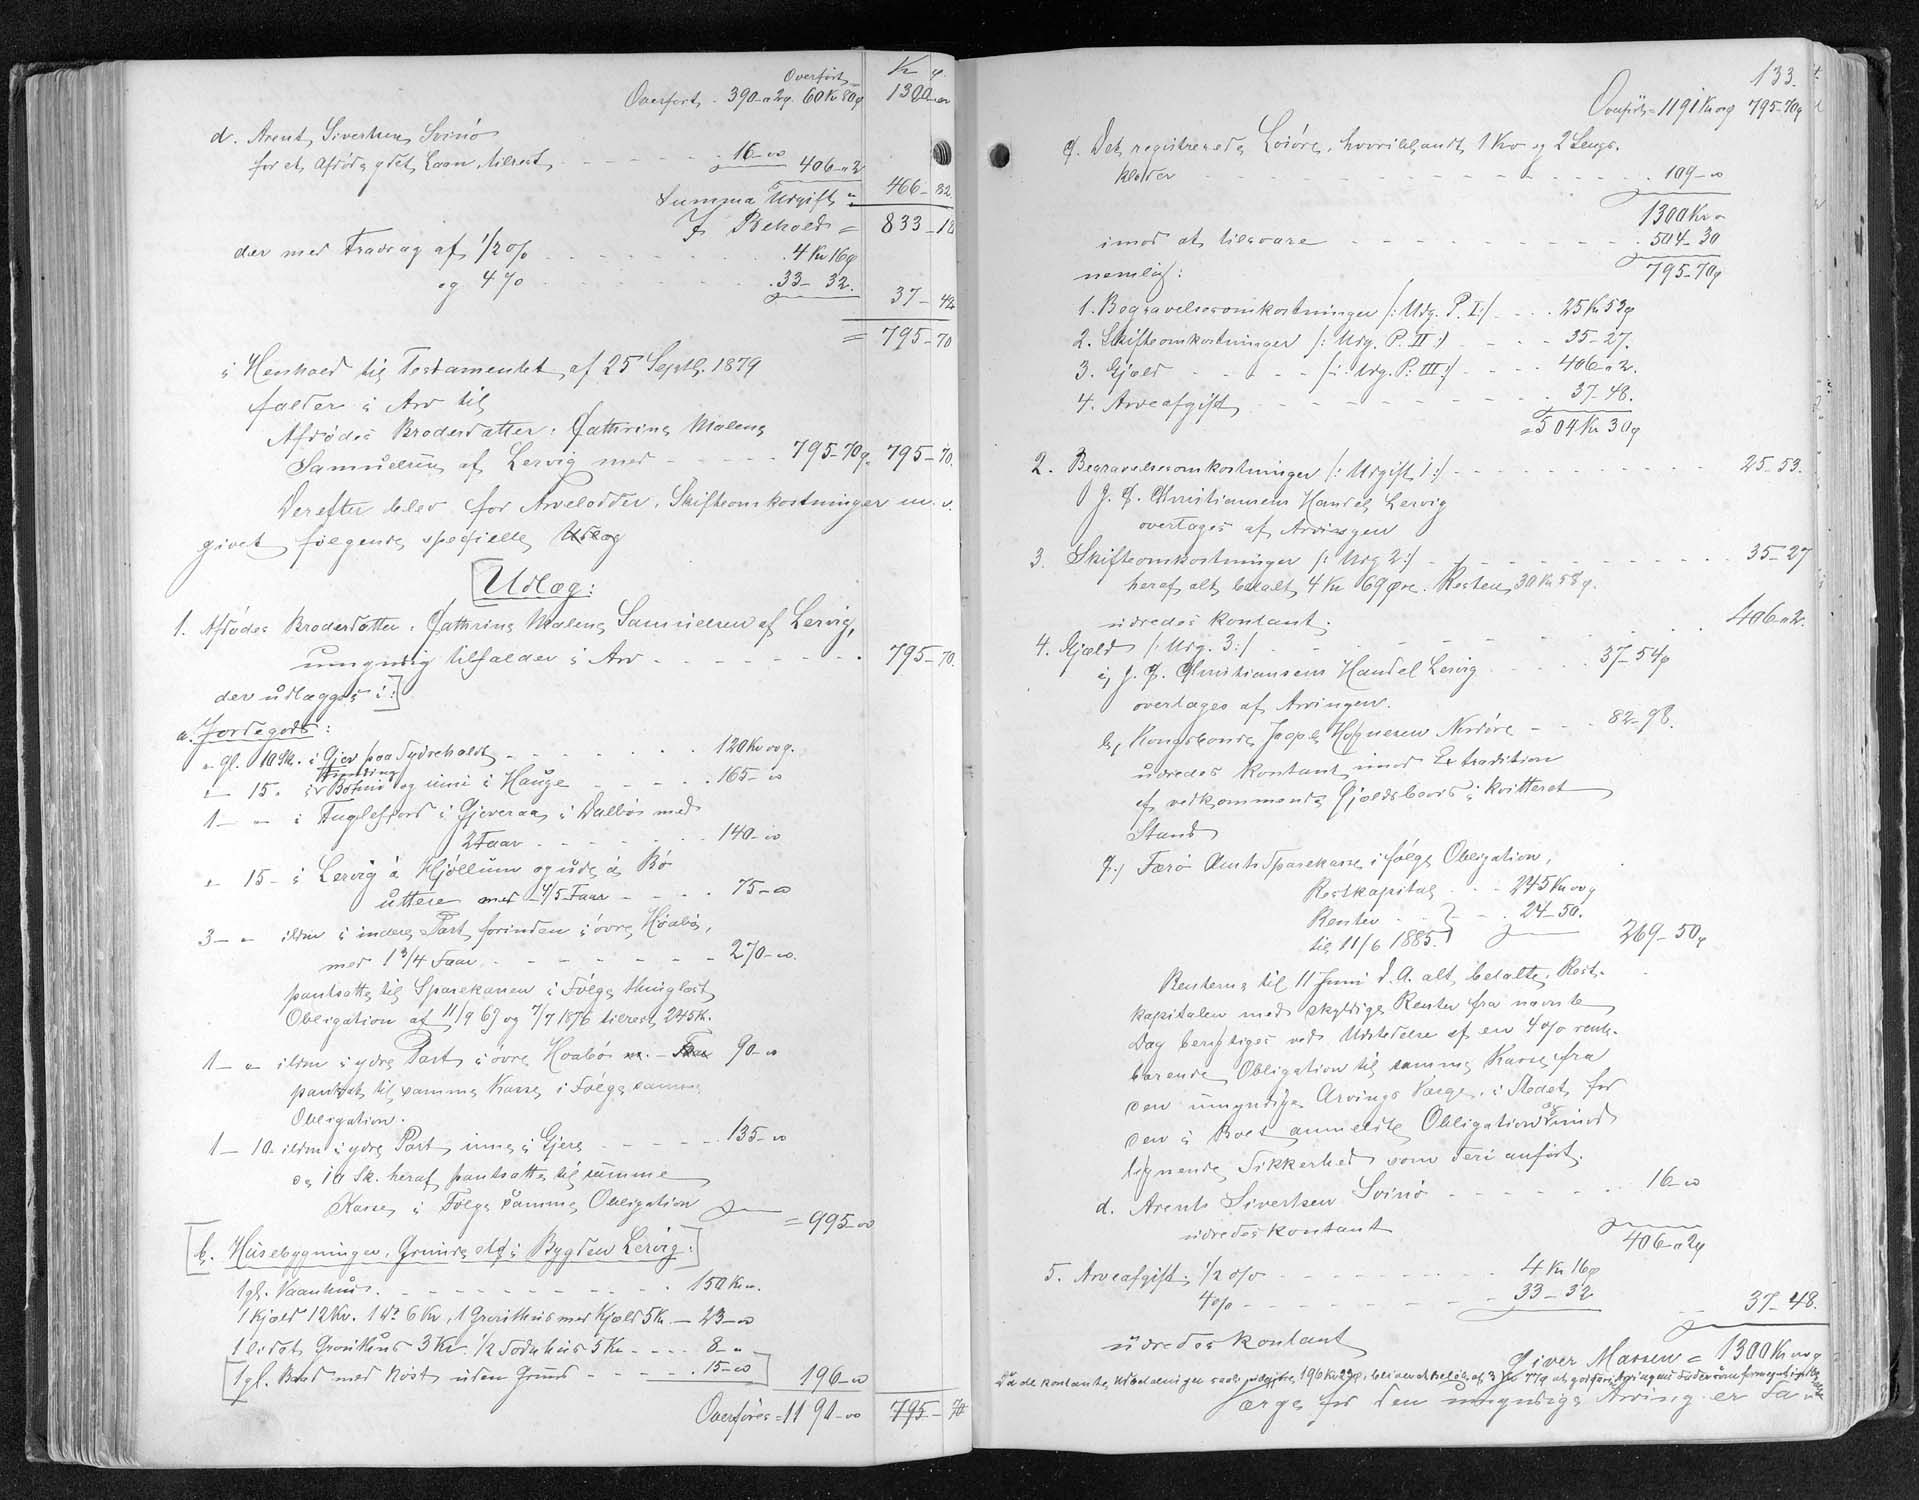 Overført
Kr ø.
Overført . 390 " 2ø. 60 Kr 80ø 1300 - "
d. Arent Sivertsen Svinø
for et Afdøde ydet Laan, tilrest . . . 16 - "
406 " 2
Summa Udgift = 466 - 82
I Behold = 833 - 18
der med Fradrag af 1/2 % . . . 4 Kr 16ø
og 4 % . . . 33 - 32. 37 - 48
= 795 - 70
i Henhold til Testamentet af 25 Septb. 1879
falder i Arv til
Afdødes Broderdatter: Cathrine Malene
Samuelsen af Lervig med . . . 795 - 70ø. 795 - 70.
Derefter blev for Arvelodder, Skifteomkostninger m. v.
givet følgende specielle Udlæg
Udlæg:
1. Afdødes Broderdatter, Cathrine Malene Samuelsen af Lervig,
umyndig tilfalder i Arv . . . 795 - 70.
der udlægges i:
a. Jordegods:
" gl. 10 Sk. i Gjer paa Sydrehaldt . . . 120 Kr " ø.
" 15 " i Bøinu og inni i Hauge . . . 165 - "
1 - " i Fuglefjord i Gjeveraa i Dalbø med
2 Faar . . . 140 - "
" 15 - i Lervig á Hjøllum og ude á Bø
uttere med 4/5 Faar . . . 75 - "
3 - " ibdm i indere Part forinden i øvre Høabø,
med 1 3/4 Faar . . . 270 - ".
pantsatte til Sparekassen i Følge thinglæst
Obligation af 11/9 67 og 7/7 1876 tilrest 245 K.
1 - " ibdm i ydre Part i øvre Hoabø 90 - "
pantsat til samme Kasse i Følge samme
Obligation.
1 - 10. ibdm i ydre Part inne i Gjere . . . 135 - "
de 10 Sk. heraf pantsatte til samme
Kasse i Følge samme Obligation = 995 - "
b. Husebygninger, Grunde etc i Bygden Lervig:
1 gl. Vaanhus . . . 150 Kr ".
1 Kjæld 12 Kr. 1 do 6 Kr, 1 Grønithus med Kjæld 5 K. - 23 - "
1 lidet Gronithus 3 Kr. 1/2 Sodnhus 5 Kr . . . 8 - "
1 gl. Baad med Nøst uden Grund . . . 15 - " 196 - "
Overføres = 1191 - " 795 - 70
133.
Overført = 1191 Kr " ø 795 - 70ø
c. Det registrerede Løsøre, hvoriblandt 1 Ko og 2 Senge-
klæder . . . 109 - "
1300 Kr "
imod at tilsvare . . . 504 - 30
795 - 70ø
nemlig:
1. Begravelsesomkostninger /: Udg. P. I :/ . . . 25 Kr 53ø
2. Skifteomkostninger /: Udg. P. II :/ . . . 35 - 27.
3. Gjæld . . . /: Udg. P. III :/ . . . 406 " 2.
4. Arveafgift . . . 37 - 48.
= 504 Kr 30ø
2. Begravelsesomkostninger /: Udgift 1 :/ . . . 25 - 53.
J. C. Christiansens Handel Lervig
overtages af Arvingen
3. Skifteomkostninger /: Udg 2 :/ . . . 35 - 27
heraf alt betalt 4 Kr 69 Øre. Resten 30 Kr 58ø.
udredes kontant.
4. Gjæld /: Udg. 3 :/ . . . 406 " 2.
a, J. C. Christiansens Handel Lervig . . . 37 - 54ø
overtages af Arvingen.
b, Kongsbonde Jacob Høgnesen Nordøre . . . 82 - 98.
udredes kontant imod Extradition
af vedkommende Gjældsbevis i kvitteret
Stand
c.) Færø Amts Sparekasse i følge Obligation,
Restkapital . . . 245 Kr " ø
Renter . . . 24 - 50.
til 11/6 1885. 269 - 50ø
Renterne til 11 Juni d. A. alt betalte. Rest-
kapitalen med skyldige Renter fra nævnte
Dag berigtiges ved Udstedelse af en 4 % rente-
bærende Obligation til samme Kasse fra
den umyndige Arvings Værge, i Stedet for
den i Boet anmeldte Obligation og imod
lignende Sikkerhed som deri anført.
d. Arent Sivertsen Svinø . . . 16 - "
udredes kontant
406 " 2ø
5. Arveafgift: 1/2 % . . . 4 Kr 16ø
4 % . . . 33 - 32
37 - 48.
udredes kontant
Giver Massen = 1300 Kr " ø
Da de kontante Udbetalinger udgjøre 196 Kr 22ø,
Værge for den umyndige Arving er Fa